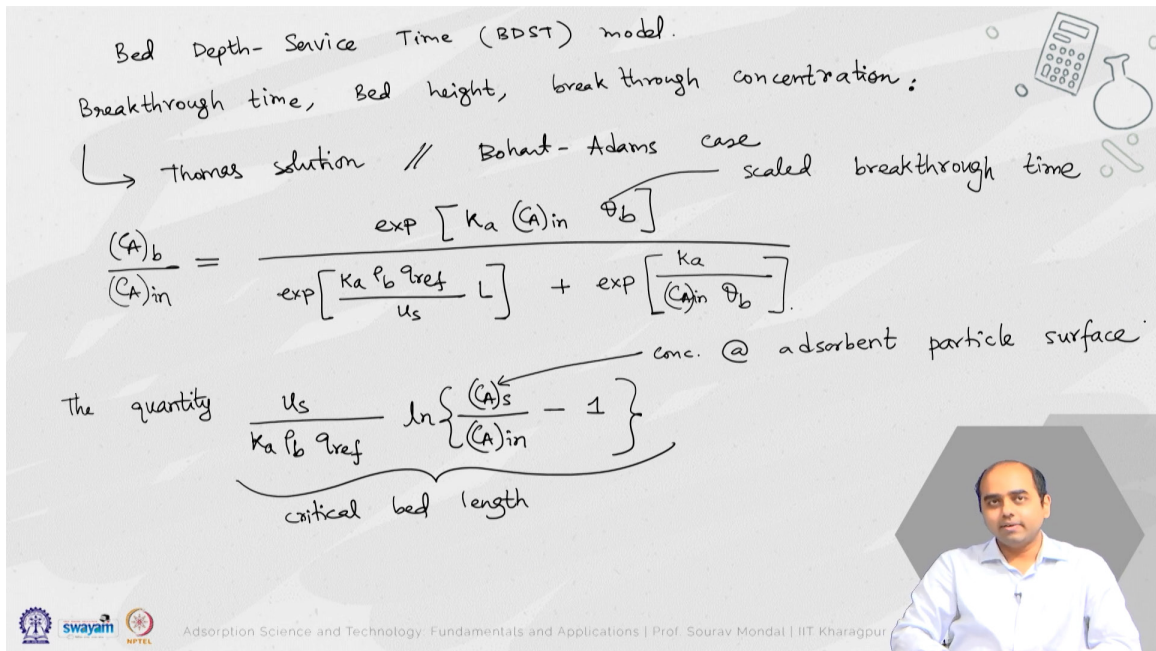 Bed Depth- Service Time (BDST) model.
Breakthrough time, Bed height, break through concentration:
↳ Thomas solution // Bohart - Adams case
scaled breakthrough time
(C_A)b / (C_A)in = exp [ka (C_A)in θb] / ( exp[ (ka ρb qref / us) L ] + exp[ ka / ((C_A)in θb) ] ).
conc. @ adsorbent particle surface
The quantity us / (ka ρb qref) ln{ (C_A)s / (C_A)in - 1 }
critical bed length
swayam
NPTEL
Adsorption Science and Technology: Fundamentals and Applications | Prof. Sourav Mondal | IIT Kharagpur